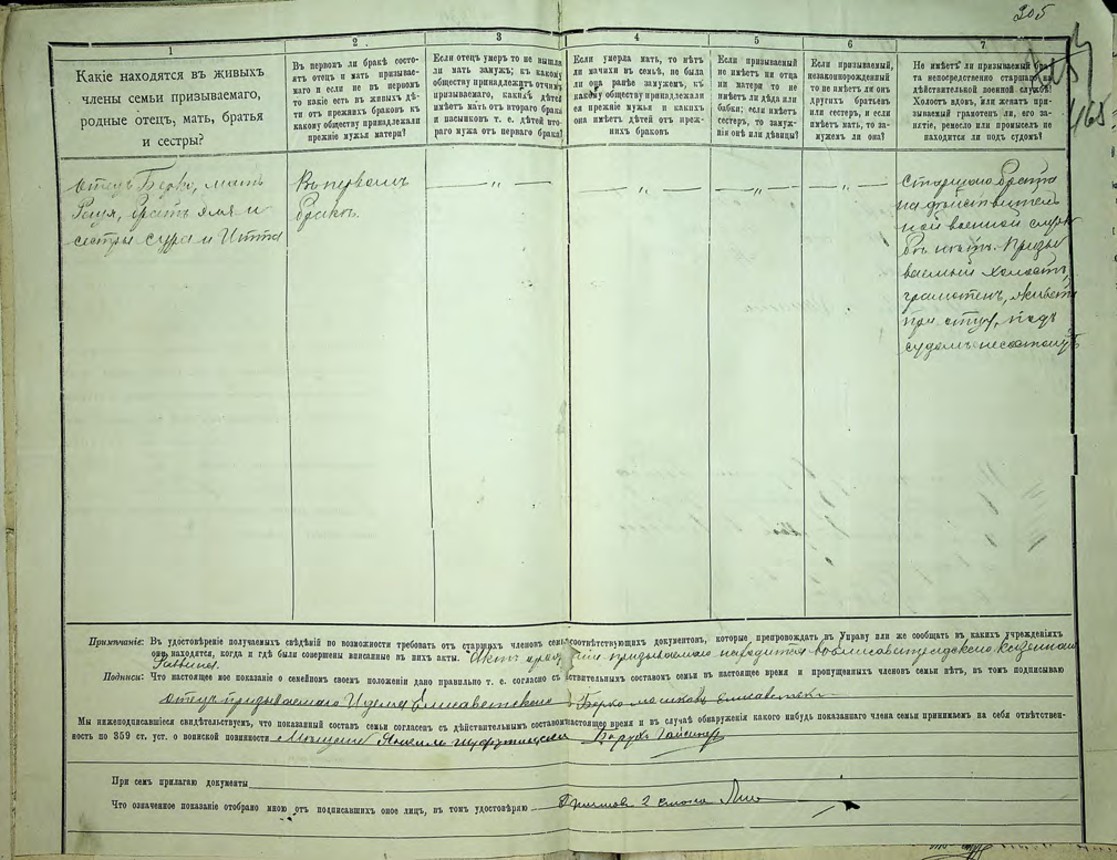 205
1
2
3
4
5
6
7
Какіе находятся въ живыхъ
члены семьи призываемаго,
родные отецъ, мать, братья
и сестры?
Въ первом ли бракѣ состо-
ятъ отецъ и мать призывае-
маго и если не в первомъ
то какіе есть в живыхъ дѣ-
ти отъ прежнихъ браковъ къ
какому обществу принадлежали
прежніе мужья матери?
Если отецъ умеръ то не вышла
ли мать замужъ; къ какому
обществу принадлежитъ отчимъ
призываемаго, какихъ дѣтей
имѣетъ мать отъ втораго брака
и пасынковъ т. е. дѣтей вто-
раго мужа отъ перваго брака?
Если умерла мать, то нѣтъ
ли мачихи въ семьѣ, не была
ли она ранѣе замужемъ, къ
какому обществу принадлежали
ея прежніе мужья и какихъ
она имѣетъ дѣтей отъ преж-
нихъ браковъ
Если призываемый
не имѣетъ ни отца
ни матери то не
имѣетъ ли дѣда или
бабки; если имѣетъ
сестеръ, то замуж-
нія онѣ или дѣвицы?
Если призываемый,
незаконнорожденный
то не имѣетъ ли онъ
другихъ братьевъ
или сестеръ, и если
имѣетъ мать, то за-
мужемъ ли она?
Не имѣетъ ли призываемый бра-
та непосредственно старшаго на
дѣйствительной военной службѣ?
Холостъ вдовъ, или женатъ при-
зываемый грамотенъ ли, его за-
нятіе, ремесло или промыселъ не
находится ли подъ судомъ?
168
отецъ Берко, мать
братъ и
сестры сура и Итта
Въ первомъ
бракѣ.
— „ —
— „ —
— „ —
— „ —
Старшаго брата
на дѣйствитель
ной военной служ
бѣ нѣтъ. Призы
ваемый холостъ,
грамотенъ, живетъ
при отцѣ, подъ
судомъ не состоитъ
Примѣчаніе: Въ удостовѣреніе получаемыхъ свѣдѣній по возможности требовать отъ старшихъ членовъ семьи соотвѣтствующихъ документовъ, которые препровождать въ Управу или же сообщать въ какихъ учрежденіяхъ
они находятся, когда и гдѣ были совершены вписанные въ нихъ акты. Актъ призываемаго находится казеннаго
Раввина.
Подписи: Что настоящее мое показаніе о семейномъ своемъ положеніи дано правильно т. е. согласно съ дѣйствительнымъ составомъ семьи въ настоящее время и пропущенныхъ членовъ семьи нѣтъ, въ томъ подписываю
отецъ призываемаго Берко
Мы нижеподписавшіеся свидѣтельствуемъ, что показанный составъ семьи согласенъ съ дѣйствительнымъ составомъ въ настоящее время и въ случаѣ обнаруженія какого нибудь показаннаго члена семьи принимаемъ на себя отвѣтствен-
ность по 359 ст. уст. о воинской повинности Барухъ Гайсинер
При семъ прилагаю документы
Что означенное показаніе отобрано мною отъ подписавшихъ оное лицъ, въ томъ удостовѣряю Приставъ 2